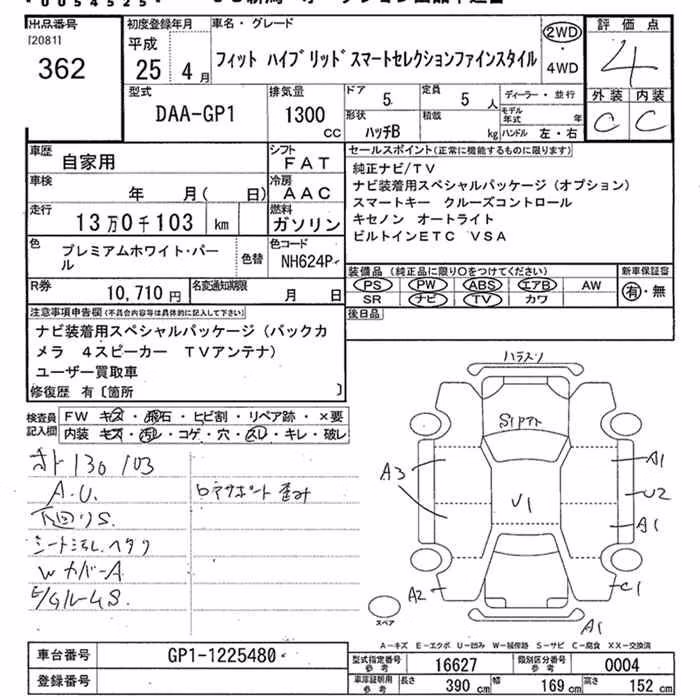 0054525
出品番号
[2081]
362
初度登録年月
平成
25年4月
車名・グレード
フィット ハイブリッドスマートセレクションファインスタイル
2WD
・
4WD
評価点
4
外装 内装
C C
型式
DAA-GP1
排気量
1300
CC
ドア
5
定員
5人
形状
ハッチB
積載
kg
ディーラー・並行
モデル年式 年
ハンドル 左・右
車歴
自家用
シフト
FAT
車検
年 月( 日)
冷房
AAC
走行
13万0千103 km
燃料
ガソリン
色
プレミアムホワイト・パール
色替
色コード
NH624P
R券
10,710円
名変通知期限
月 日
セールスポイント(正常に機能するものに限ります)
純正ナビ/TV
ナビ装着用スペシャルパッケージ(オプション)
スマートキー クルーズコントロール
キセノン オートライト
ビルトインETC VSA
装備品(純正品に限り○をつけてください)
PS PW ABS エアB AW
SR ナビ TV カワ
新車保証書
有・無
後日品
注意事項申告欄(不具合内容等は具体的に記入して下さい)
ナビ装着用スペシャルパッケージ(バックカ
メラ 4スピーカー TVアンテナ)
ユーザー買取車
修復歴 有〔箇所 〕
検査員
記入欄
FW キズ・飛石・ヒビ割・リペア跡・×要
内装 キズ・汚れ・コゲ・穴・スレ・キレ・破レ
130103
A.U.
下回りS.
WカバーA
E/GルームS.
ロアサポート歪み
ハラスン
A3
U1
A1
U2
A1
A2
C1
A1
スペア
A-キズ E-エクボ U-凹み W-補修跡 S-サビ C-腐食 XX-交換済
車台番号
GP1-1225480
登録番号
型式指定番号
参考
16627
類別区分番号
参考
0004
車庫証明用
参考
長さ 390cm 幅 169cm 高さ 152cm